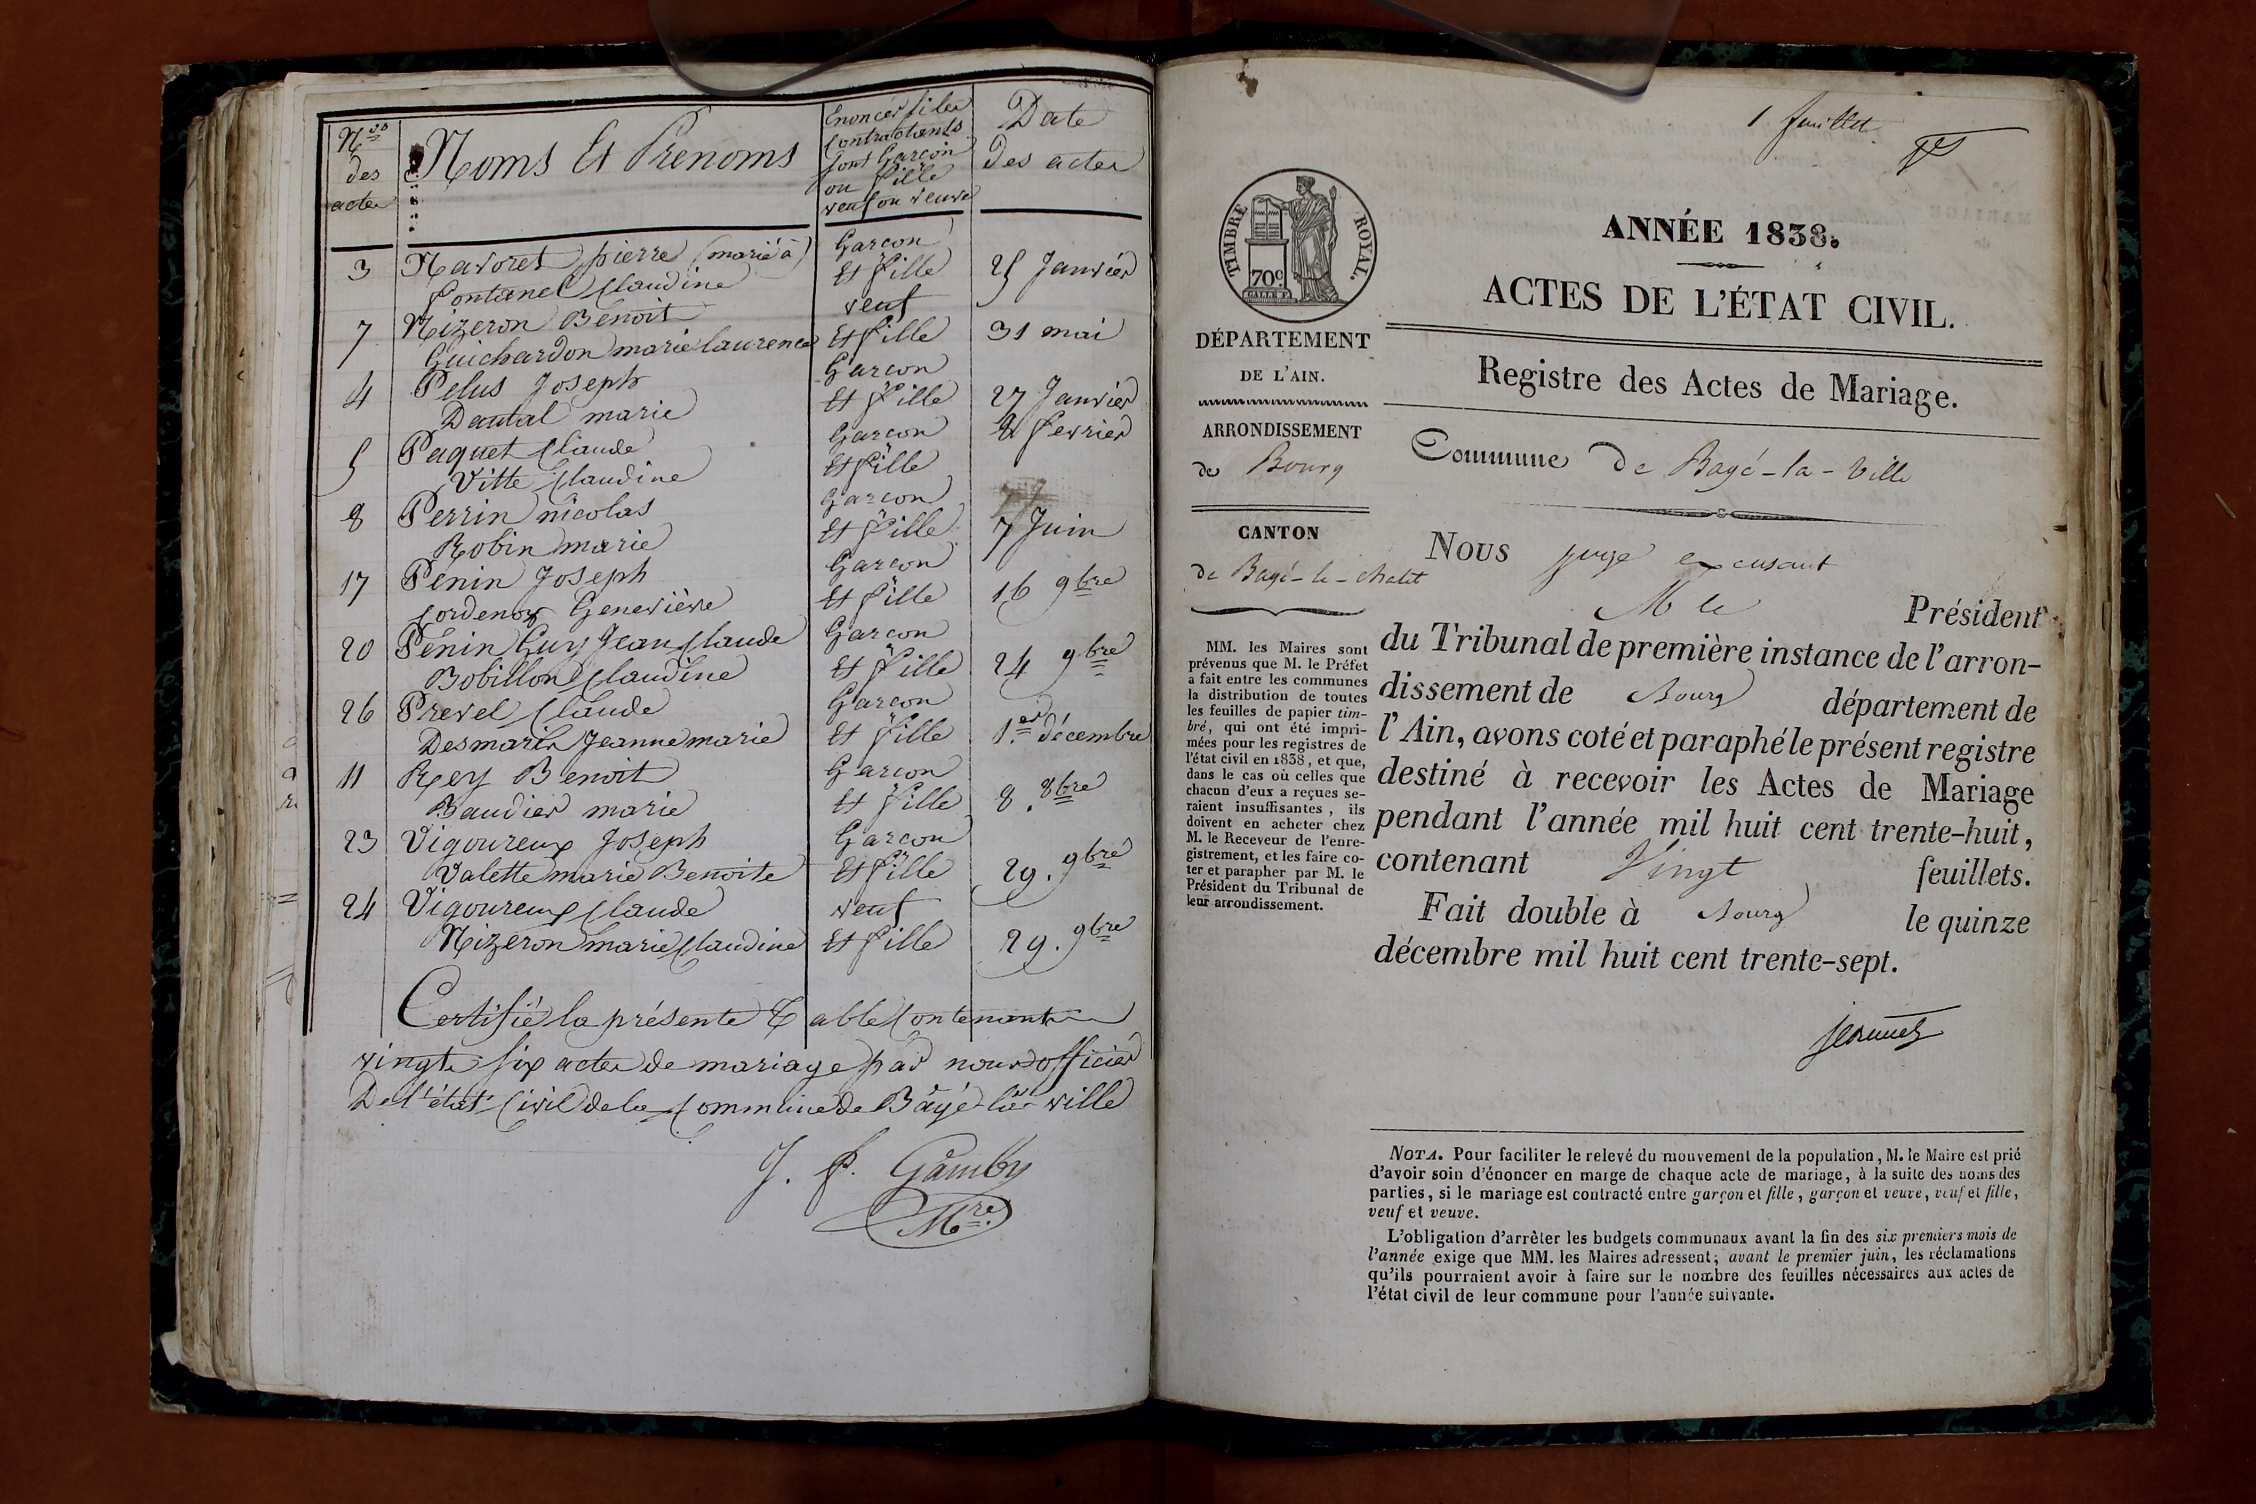 Nos des actes
Noms Et Prenoms
Enoncer si les
contractants
sont Garcon
ou fille
veuf ou veuve
Date
des actes
3 Navoret pierre (marié à) Garcon
Fontanel Claudine Et fille 25 Janvier
7 Nizeron Benoit veuf
Guichardon marie laurence Et fille 31 mai
4 Pelus Joseph Garcon
Dautal marie Et fille 27 Janvier
5 Paquet Claude Garcon 2 fevrier
Vitte Claudine Et fille
8 Perrin nicolas Garcon
Robin marie Et fille 7 Juin
17 Penin Joseph Garcon
Cordenox Geneviève Et fille 16 9bre
20 Pénin Guy Jean Claude Garcon
Bobillon Claudine Et fille 24 9bre
26 Prevel Claude Garcon
Desmaris Jeanne marie Et fille 1.er décembre
11 Rey Benoit Garcon
Baudier marie Et fille 8. 8bre
23 Vigoureux Joseph Garcon
Valette marie Benoite Et fille 29. 9bre
24 Vigoureux Claude veuf
Nizeron marie Claudine Et fille 29. 9bre
Certifié la présente Table Contenant
vingt six actes de mariage par nous officier
De l'état Civil de la Commune de Bâgé la ville
J. P. Gamby
Mre
1 feuillet
TIMBRE ROYAL.
70c
ANNÉE 1838.
ACTES DE L'ÉTAT CIVIL.
Registre des Actes de Mariage.
DÉPARTEMENT
DE L'AIN.
ARRONDISSEMENT
de Bourg
CANTON
de Bagé-le-chatel
MM. les Maires sont
prévenus que M. le Préfet
a fait entre les communes
la distribution de toutes
les feuilles de papier tim-
bré, qui ont été impri-
mées pour les registres de
l'état civil en 1838, et que,
dans le cas où celles que
chacun d'eux a reçues se-
raient insuffisantes, ils
doivent en acheter chez
M. le Receveur de l'enre-
gistrement, et les faire co-
ter et parapher par M. le
Président du Tribunal de
leur arrondissement.
Commune de Bagé-la-Ville
Nous juge excusant
M le Président
du Tribunal de première instance de l'arron-
dissement de Bourg département de
l'Ain, avons coté et paraphé le présent registre
destiné à recevoir les Actes de Mariage
pendant l'année mil huit cent trente-huit,
contenant Vingt feuillets.
Fait double à Bourg le quinze
décembre mil huit cent trente-sept.
NOTA. Pour faciliter le relevé du mouvement de la population, M. le Maire est prié
d'avoir soin d'énoncer en marge de chaque acte de mariage, à la suite des noms des
parties, si le mariage est contracté entre garçon et fille, garçon et veuve, veuf et fille,
veuf et veuve.
L'obligation d'arrêter les budgets communaux avant la fin des six premiers mois de
l'année exige que MM. les Maires adressent; avant le premier juin, les réclamations
qu'ils pourraient avoir à faire sur le nombre des feuilles nécessaires aux actes de
l'état civil de leur commune pour l'année suivante.